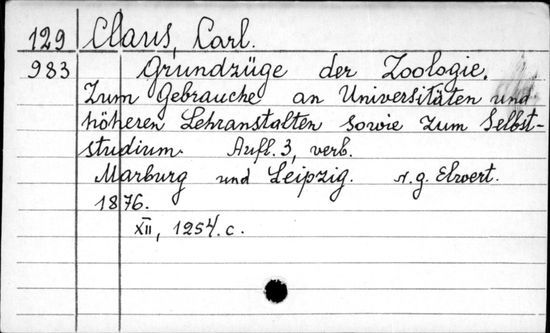 129 Claus, Carl.
983 Grundzüge der Zoologie.
Zum Gebrauche an Universitäten und
höheren Lehranstalten sowie zum Selbst-
studium. Aufl. 3, verb.
Marburg und Leipzig. N. g. Elwert.
1876.
XII, 1254. c.